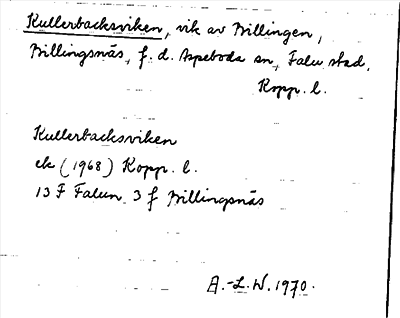 Kullerbacksviken, vik av Billingen,
Billingsnäs, f. d. Aspeboda sn, Falu stad,
Kopp. l.
Kullerbacksviken
ek (1968) Kopp. l.
13 F Falun 3 f Billingsnäs
A.-L.W. 1970.